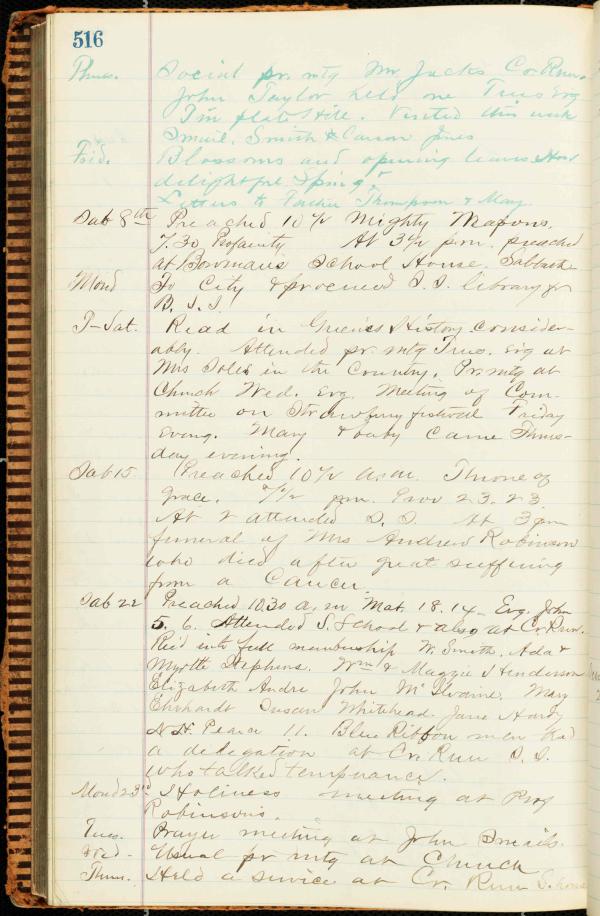 516
Thurs. Social pr. mtg Mr. Jacks Cr. Run.
John Taylor held one Tues Evg
I'm flat Hill. Visited this week
Smail. Smith & Carson Jones
Frid. Blossoms and opening leaves. How
delightful Spring!
Letters to Parker Thompson & Mary.
Sab 8th Preached 10 1/2 Mighty Weapons.
7.30 Profanity At 3 1/2 p.m. preached
at Bowman's School House. Sabbath
Mond To City & procured S.S. library for
B.S.S.
T-Sat. Read in Green's History consider-
ably. Attended pr. mtg Tues. Evg at
Mrs Soles in the Country. Pr. mtg at
Church Wed. Evg. Meeting of Com-
mittee on Strawberry festival Friday
Eveng. Mary & baby came Thurs-
day evening.
Sab 15. Preached 10 1/2 a.m. Throne of
grace. 7 1/2 p.m. Prov 23.23.
At 2 attended S.S. At 3 pm
funeral of Mrs Andrew Robinson
who died after great suffering
from a Cancer.
Sab 22 Preached 10.30 a.m Mat. 18.14 - Evg. John
5.6. Attended S. School & also at Cr. Run.
Rec'd into full membership W. Smith. Ada &
Myrtle Stephens. Wm & Maggie J Henderson
Elizabeth Andre John McIlvaine. Mary
Ehrhardt Susan Whitehead. Jane Hardy
N.H. Pearce 11. Blue Ribbon men had
a delegation at Cr. Run S.S.
who talked temperance.
Mond 23rd Holiness meeting at Prof
Robinsons.
Tues. Prayer meeting at John Smails.
Wed- Usual pr mtg at Church
Thurs. Held a service at Cr. Run S. house